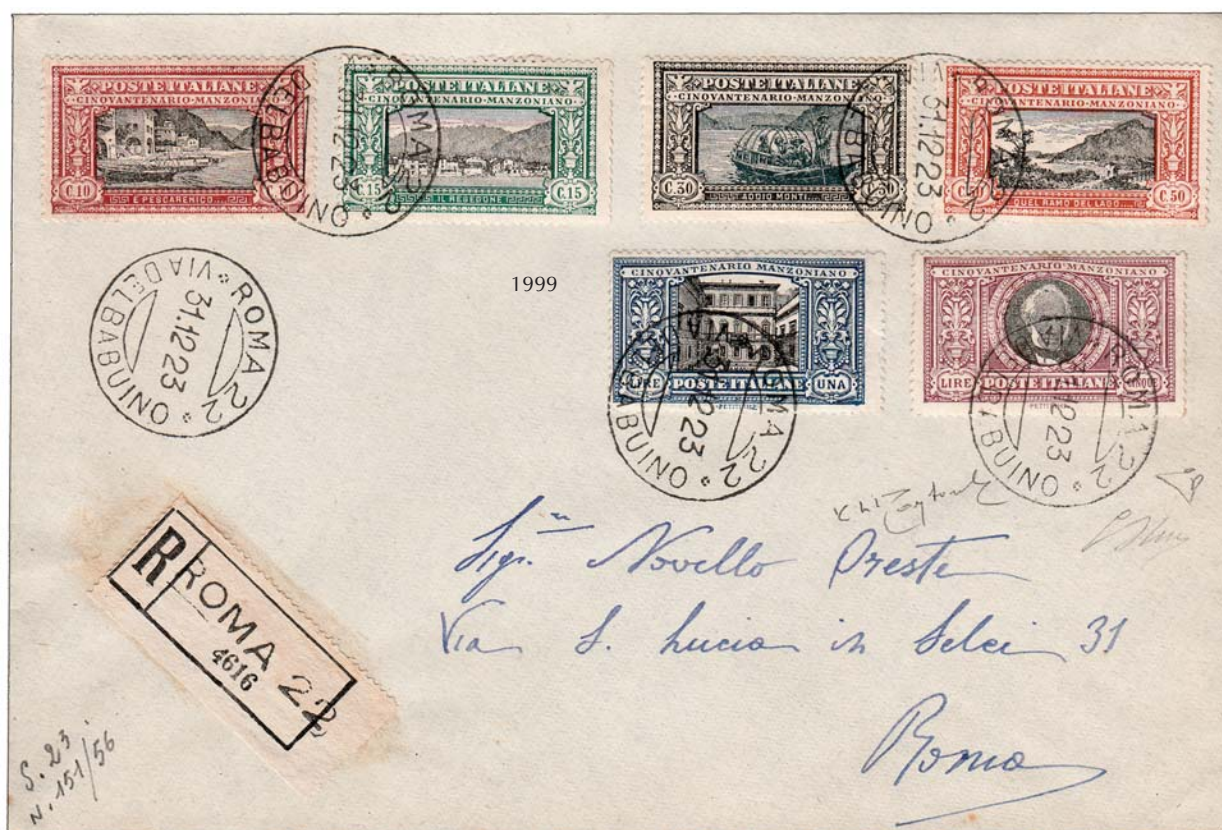 POSTE ITALIANE
CINQVANTENARIO·MANZONIANO
C.10
E PESCARENICO...
POSTE ITALIANE
CINQVANTENARIO·MANZONIANO
C.15 C.15
IL RESEGONE
POSTE ITALIANE
CINQVANTENARIO·MANZONIANO
C.30
ADDIO MONTI....
POSTE ITALIANE
CINQVANTENARIO·MANZONIANO
C.50
QUEL RAMO DEL LAGO...
ROMA 22
31.12.23
DEL BABUINO
ROMA 22
31.12.23
VIA DEL BABUINO
ROMA 22 * VIA DEL BABUINO *
31.12.23
1999
CINQVANTENARIO MANZONIANO
LIRE POSTE ITALIANE UNA
CINQVANTENARIO MANZONIANO
LIRE POSTE ITALIANE CINQUE
ROMA 22
12.23
BABUINO
ROMA 22
12.23
BABUINO
Sigr. Novello Oreste
Via S. Lucia in Selci 31
Roma
R ROMA 22
4616
S. 23
N. 151/56